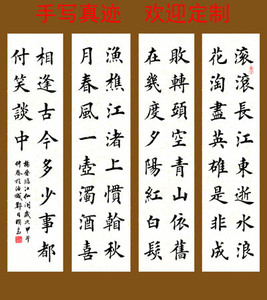 手写真迹 欢迎定制
滾滾長江東逝水浪
花淘盡英雄是非成
敗轉頭空青山依舊
在幾度夕陽紅白髮
漁樵江渚上慣看秋
月春風一壺濁酒喜
相逢古今多少事都
付笑談中
楊慎臨江仙詞歲次甲午